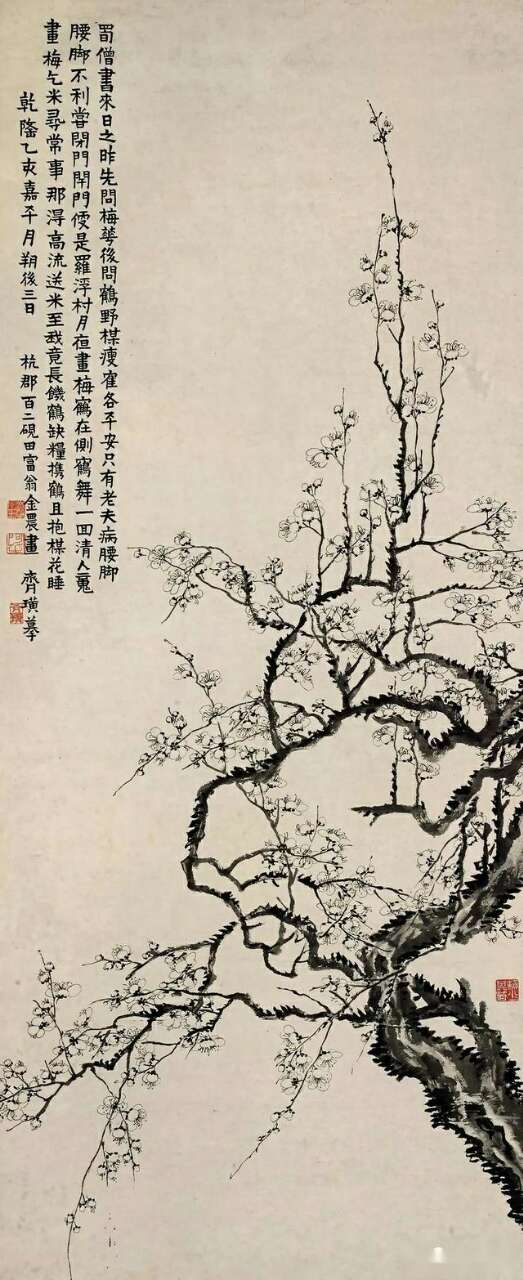 蜀僧書來日之昨先問梅華後問鶴野楳瘦隺各平安只有老夫病腰脚
腰脚不利嘗閉門閉門便是羅浮村月夜畫梅鶴在側鶴舞一回清人䰟
畫梅乞米尋常事那得高流送米至我竟長饑鶴缺糧携鶴且抱楳花睡
乾隆乙亥嘉平月朔後三日 杭郡百二硯田富翁金農畫 齊璜摹